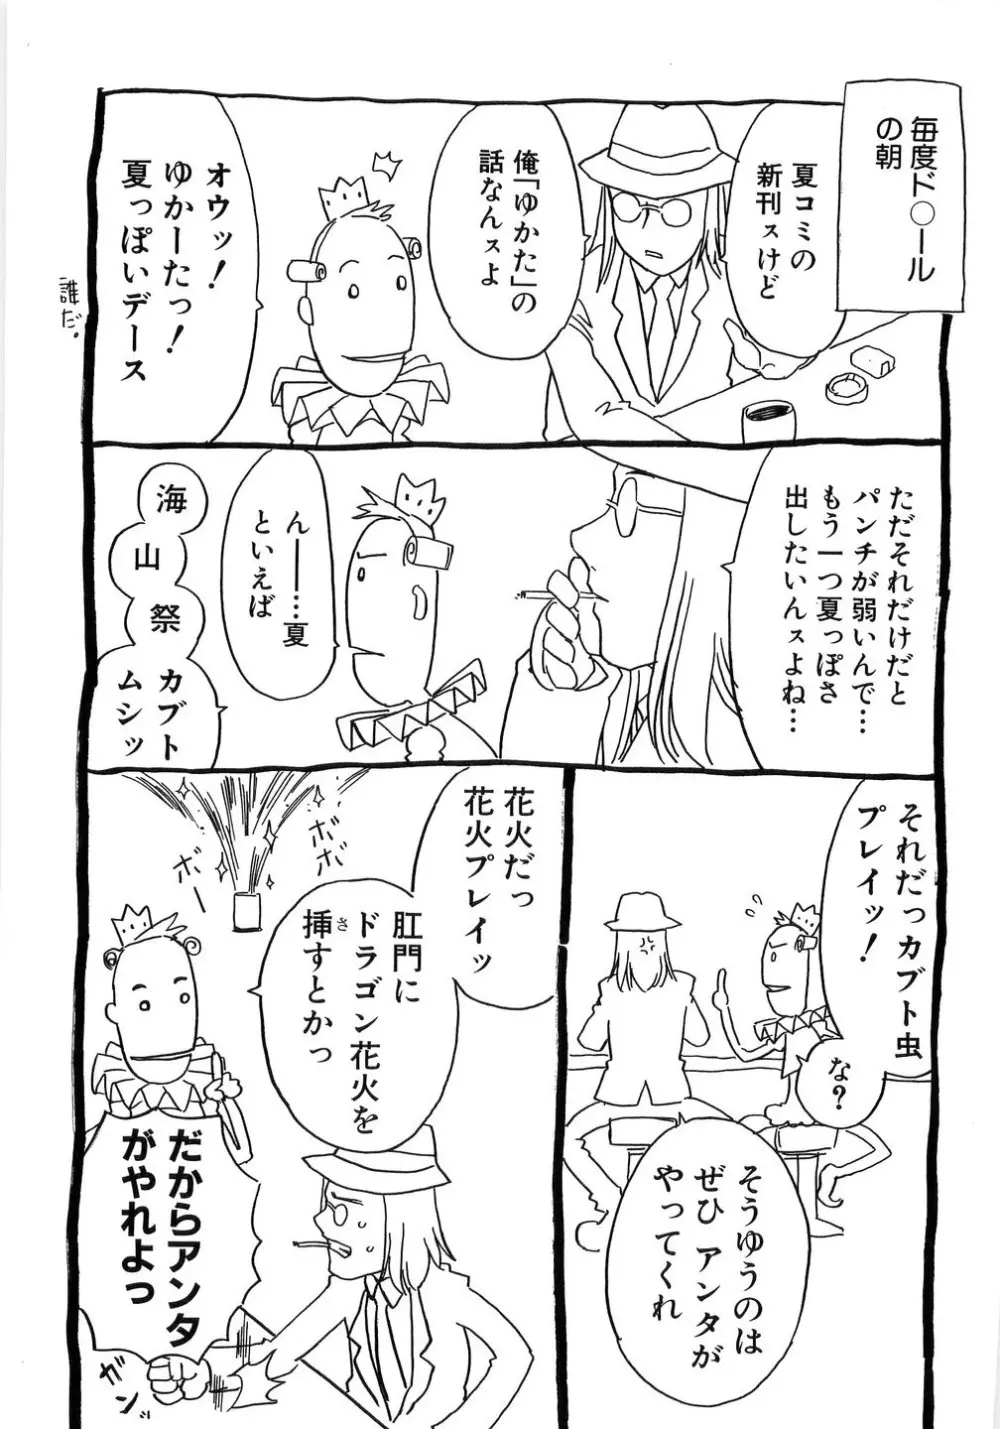 毎度ド○ール
の朝
夏コミの
新刊ㇲけど
俺「ゆかた」の
話なんㇲよ
オウッ!
ゆかーたっ!
夏っぽいデース
誰だ。
ただそれだけだと
パンチが弱いんで…
もう一つ夏っぽさ
出したいんㇲよね…
んー…夏
といえば
海
山
祭
カブト
ムシッ
それだっカブト虫
プレイッ!
な?
そうゆうのは
ぜひ アンタが
やってくれ
花火だっ
花火プレイッ
肛門に
ドラゴン花火を
挿すとかっ
さ
ボボ
ボー
だからアンタ
がやれよっ
ガンッ